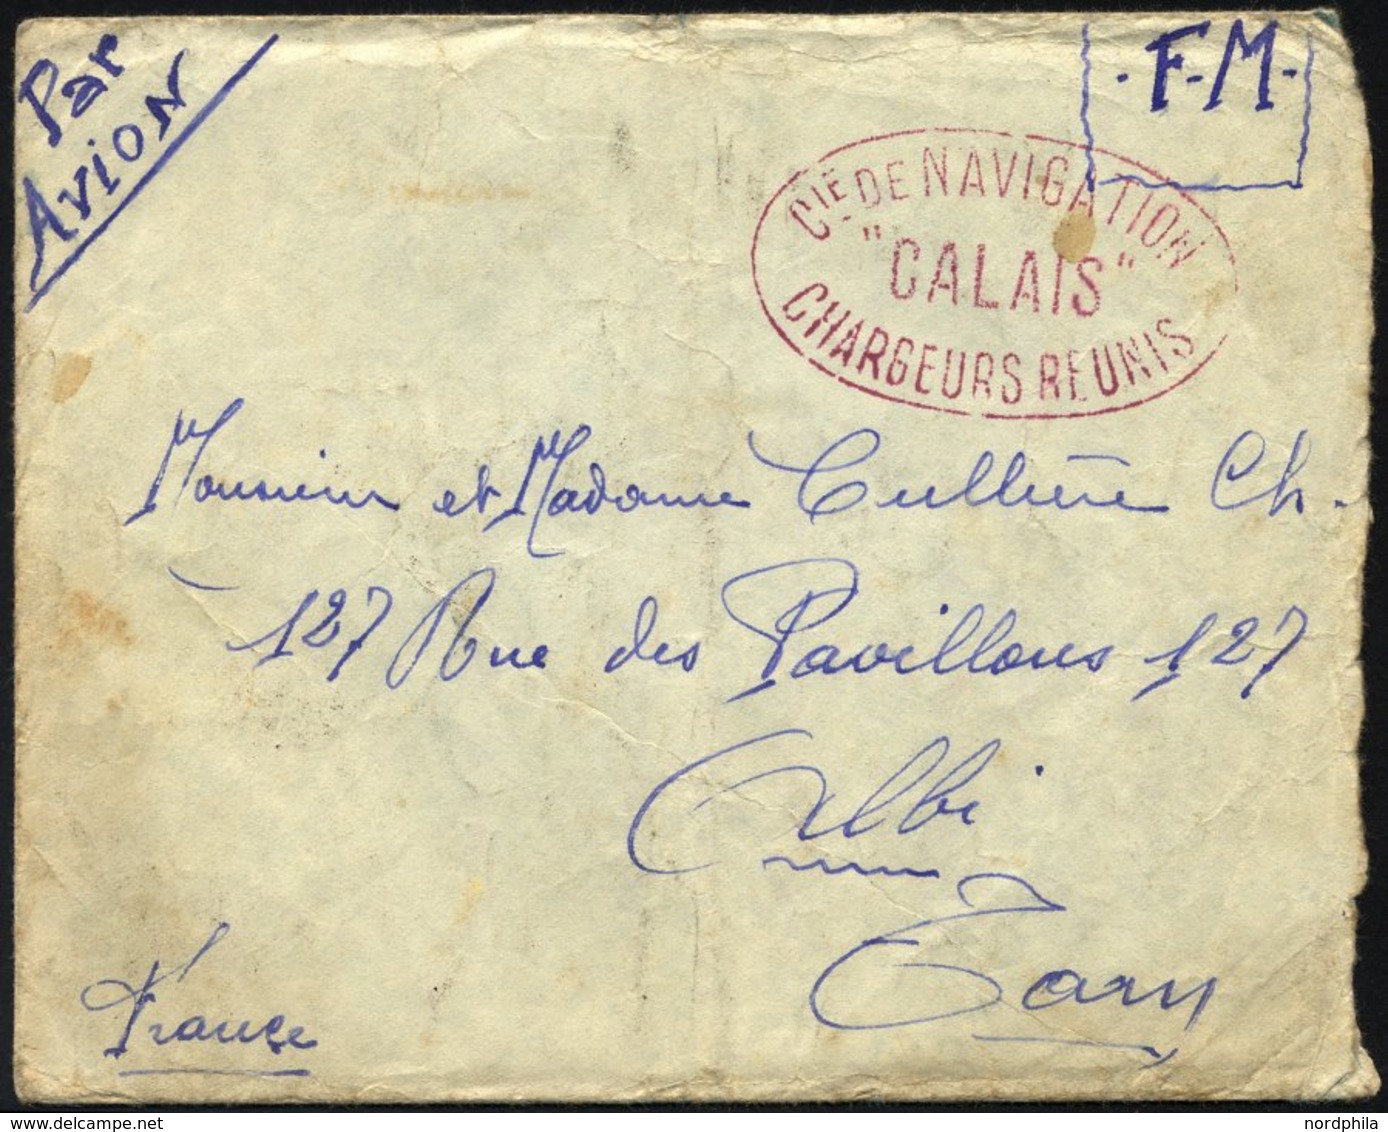 Par
Avion
· F-M-
CIE DE NAVIGATION
"CALAIS"
CHARGEURS REUNIS
Monsieur et Madame Cullière Ch.
127 Rue des Pavillons 127
Albi
Tarn
France
nordphila